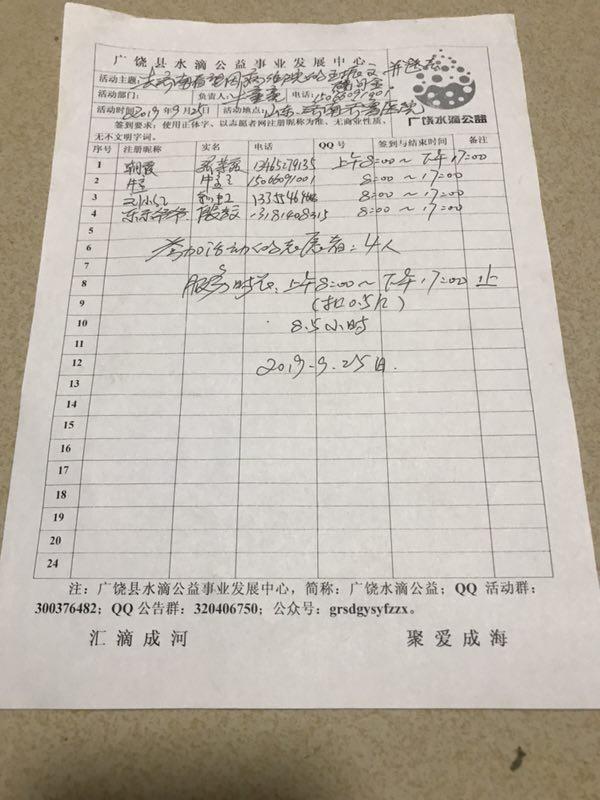 广饶县水滴公益事业发展中心
活动主题：去济南看望因病住院的 并送去
活动部门： 负责人： 电话：15066091001
活动时间：2019年9月25日 活动地点：山东 济南 医院
签到要求：使用正体字，以志愿者网注册昵称为准、无商业性质、
无不文明字词。
广饶水滴公益
序号 注册昵称 实名 电话 QQ号 签到与结束时间 备注
1 朝霞 13465279135 上午8:00～下午17:00
2 牛 牛 15066091001 8:00～17:00
3 8:00～17:00
4 东东爷爷 13181408315 8:00～17:00
5
6 参加活动的志愿者：4人
7
8 服务时长：上午8:00～下午17:00止
9 (扣0.5)
10 8.5小时
11
12 2019.9.25日.
13
14
15
16
17
18
19
20
24
注：广饶县水滴公益事业发展中心，简称：广饶水滴公益；QQ 活动群：
300376482；QQ 公告群：320406750；公众号：grsdgysyfzzx。
汇滴成河 聚爱成海